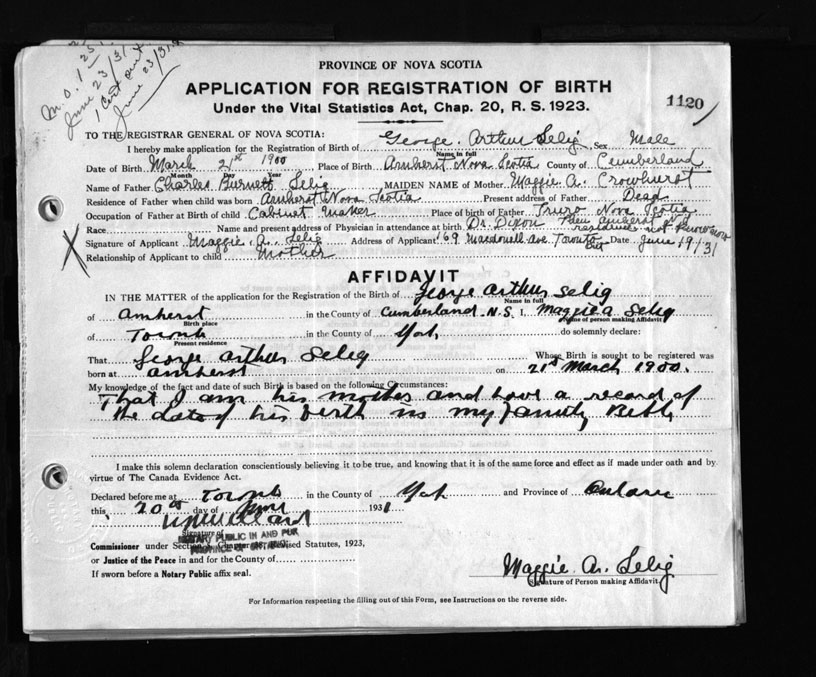 M.O. 1
June 23/31
1 Cert sent
June 23/31
PROVINCE OF NOVA SCOTIA
APPLICATION FOR REGISTRATION OF BIRTH
Under the Vital Statistics Act, Chap. 20, R. S. 1923.
1120
TO THE REGISTRAR GENERAL OF NOVA SCOTIA:
I hereby make application for the Registration of Birth of George Arthur Selig Sex Male
Name in full
Date of Birth March 21st 1900 Place of Birth Amherst Nova Scotia County of Cumberland
Month Day Year
Name of Father Charles Burnett Selig MAIDEN NAME of Mother Maggie A. Crowhurst
Residence of Father when child was born Amherst Nova Scotia Present address of Father Dead
Occupation of Father at Birth of child Cabinet Maker Place of birth of Father Truro Nova Scotia
Race Name and present address of Physician in attendance at birth Dr. Dixon then Amherst N.S. residence not known now
Signature of Applicant Maggie A. Selig Address of Applicant 169 Macdonell Ave Toronto Ont Date June 19/31
Relationship of Applicant to child Mother
AFFIDAVIT
IN THE MATTER of the application for the Registration of the Birth of George Arthur Selig
Name in full
of Amherst in the County of Cumberland N.S. I, Maggie A Selig
Birth place Name of person making Affidavit
of Toronto in the County of York do solemnly declare:
Present residence
That George Arthur Selig Whose Birth is sought to be registered was
born at Amherst on 21st March 1900.
My knowledge of the fact and date of such Birth is based on the following Circumstances:
That I am his mother and have a record of
the date of his birth in my family Bible
I make this solemn declaration conscientiously believing it to be true, and knowing that it is of the same force and effect as if made under oath and by
virtue of The Canada Evidence Act.
Declared before me at Toronto in the County of York and Province of Ontario
this 20th day of June 1931
Signature of
NOTARY PUBLIC IN AND FOR
PROVINCE OF ONTARIO
Commissioner under Section Revised Statutes, 1923,
or Justice of the Peace in and for the County of
If sworn before a Notary Public affix seal.
Maggie A. Selig
Signature of Person making Affidavit
For Information respecting the filling out of this Form, see Instructions on the reverse side.